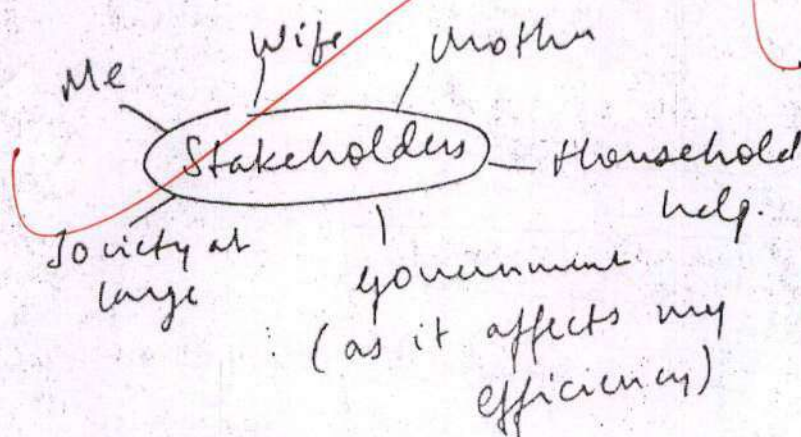 Me
Wife
Mother
Stakeholders
Household
help.
Society at
large
government
(as it affects my
efficiency)